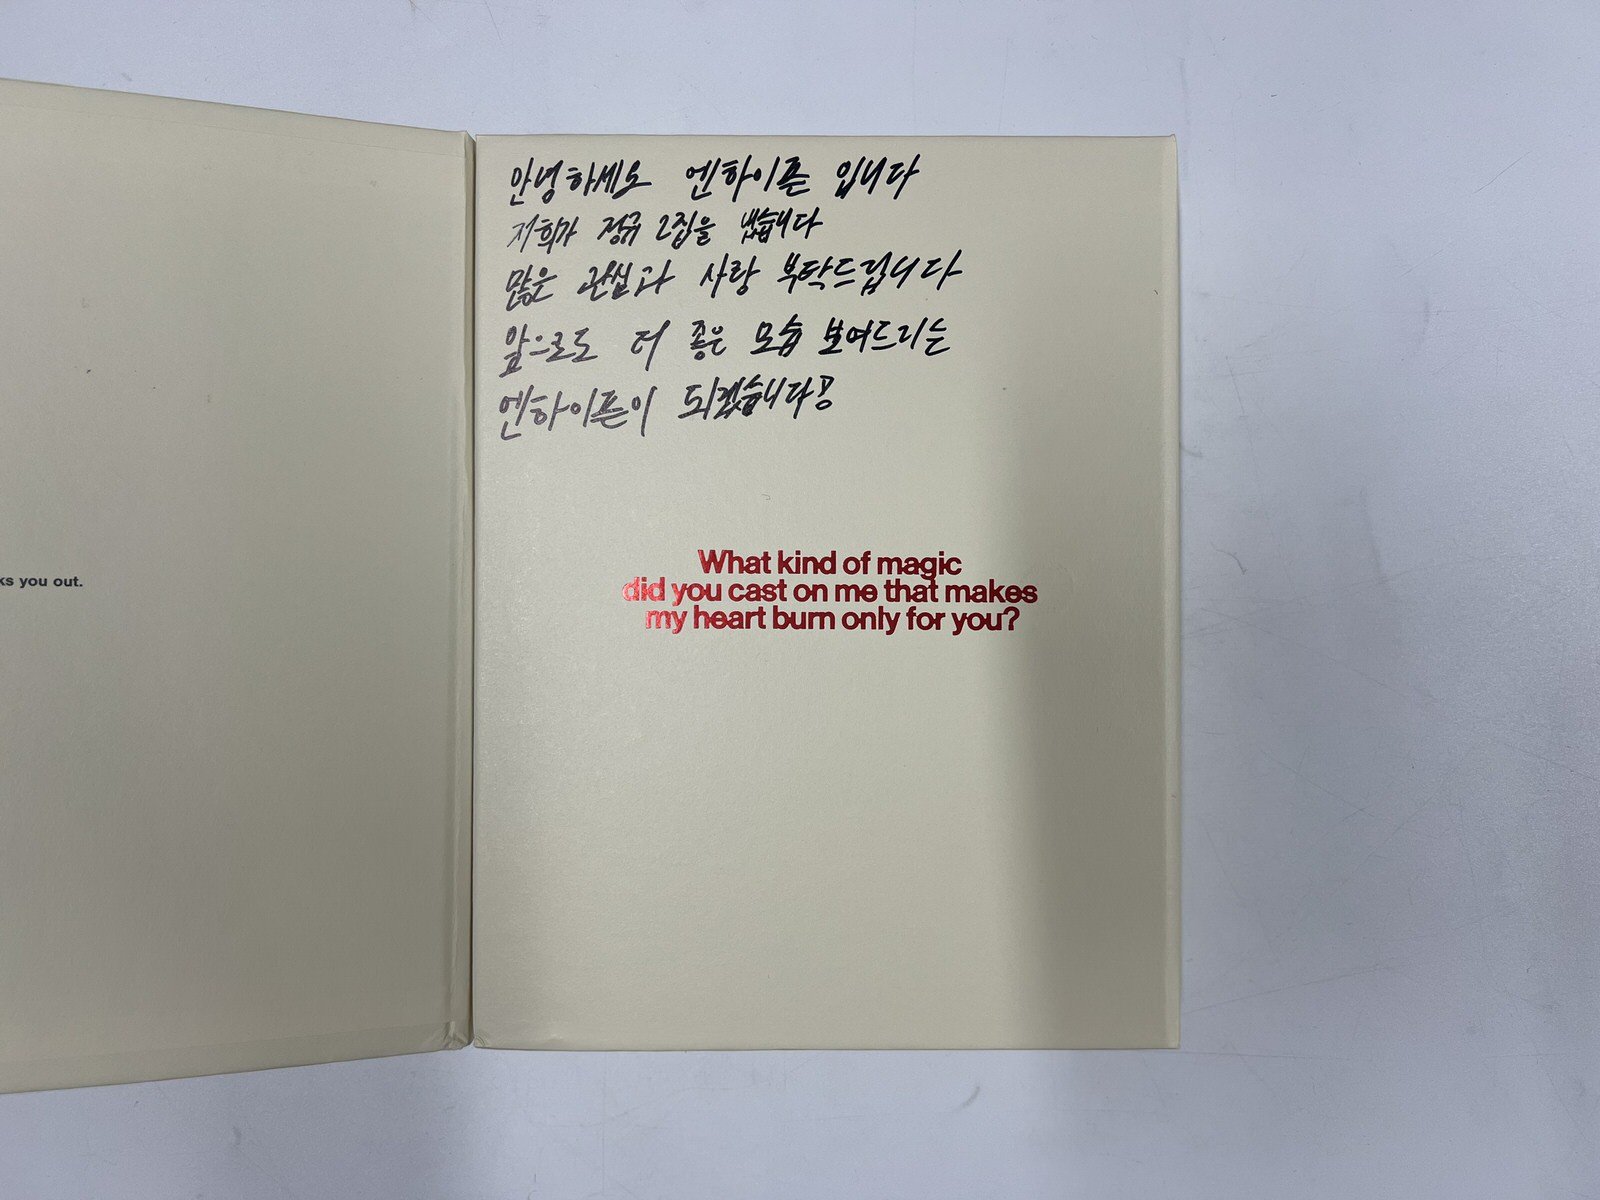 ks you out.
안녕하세요 엔하이픈 입니다
저희가 정규 2집을 냈습니다
많은 관심과 사랑 부탁드립니다
앞으로도 더 좋은 모습 보여드리는
엔하이픈이 되겠습니다
What kind of magic
did you cast on me that makes
my heart burn only for you?